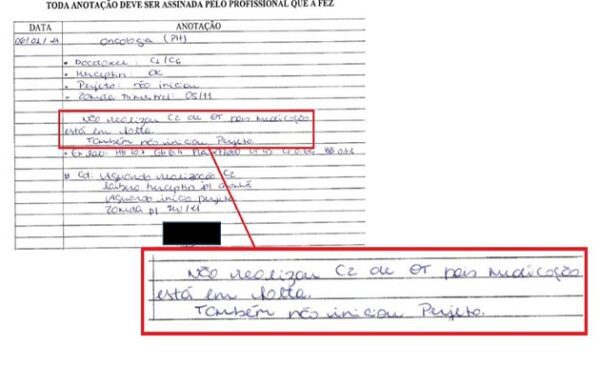 TODA ANOTAÇÃO DEVE SER ASSINADA PELO PROFISSIONAL QUE A FEZ
DATA ANOTAÇÃO
oncologia (PH)
Docetaxel: C1/C6
Herceptin: OK
Perjeta: não iniciou
Zometa trimestral: 05/11
Não realizou C2 de QT pois medicação
está em falta.
Também não iniciou Perjeta.
Cd: Aguardo realização C2
Herceptin p/ amanhã
Aguardo início perjeta
Zometa p/
Não realizou C2 de QT pois medicação
está em falta.
Também não iniciou Perjeta.